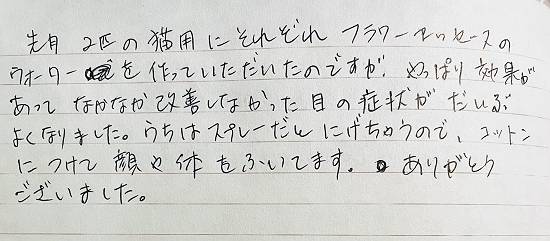 先月 2匹の猫用にそれぞれ フラワーエッセースの
ウォーターを作っていただいたのですが、やっぱり効果が
あって なかなか改善しなかった目の症状が だいぶ
よくなりました。うちはスプレーだと にげちゃうので、コットン
につけて 顔や体をふいてます。ありがとう
ございました。